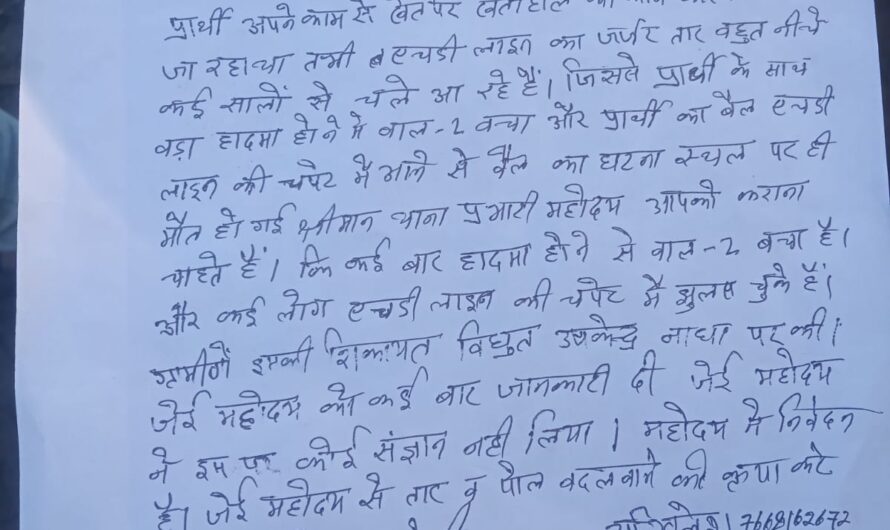 प्रार्थी अपने काम से खेत पर
जा रहा था तभी एचडी लाइन का जर्जर तार बहुत नीचे
कई सालों से चले आ रहे हैं। जिससे प्रार्थी के साथ
बड़ा हादसा होने से बाल-2 बचा और प्रार्थी का बैल एचडी
लाइन की चपेट में आने से बैल का घटना स्थल पर ही
मौत हो गई श्रीमान थाना प्रभारी महोदय आपको कराना
चाहते हैं। कि कई बार हादसा होने से बाल-2 बचा है।
और कई लोग एचडी लाइन की चपेट में झुलस चुके हैं।
ग्रामीणों इसकी शिकायत विधुत उपकेन्द्र नाधा पर की।
जेई महोदय को कई बार जानकारी दी जेई महोदय
ने इस पर कोई संज्ञान नही लिया। महोदय से निवेदन
है। जेई महोदय से तार व पौल बदलवाने की कृपा करे
7668162672